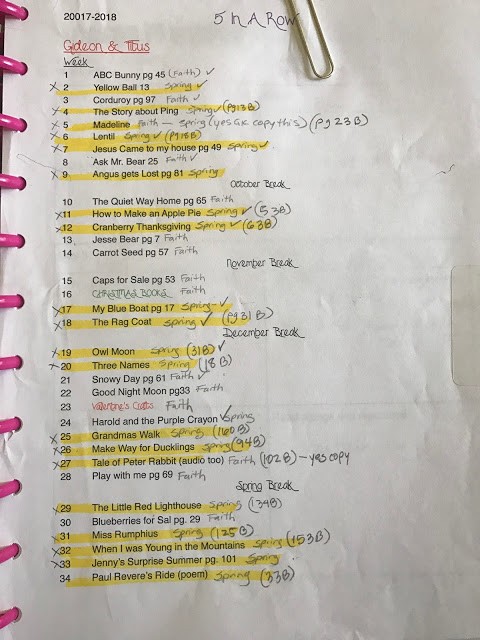 20017-2018
5 In A Row
Gideon & Titus
Week
1 ABC Bunny pg 45 (Faith) ✓
x 2 Yellow Ball 13 Spring ✓
3 Corduroy pg 97 Faith ✓
x 4 The Story about Ping Spring ✓ (Pg 13B)
x 5 Madeline Faith — Spring (yes GK copy this) (pg 23B)
x 6 Lentil Spring ✓ (pg 18B)
x 7 Jesus Came to my house pg 49 Spring ✓
8 Ask Mr. Bear 25 Faith ✓
x 9 Angus gets Lost pg 81 Spring
October Break
10 The Quiet Way Home pg 65 Faith
x 11 How to Make an Apple Pie Spring ✓ (53B)
x 12 Cranberry Thanksgiving Spring ✓ (63B)
13 Jesse Bear pg 7 Faith
14 Carrot Seed pg 57 Faith
November Break
15 Caps for Sale pg 53 Faith
16 Christmas Books Faith
x 17 My Blue Boat pg 17 Spring - ✓
x 18 The Rag Coat Spring ✓ (pg 31B)
December Break
x 19 Owl Moon Spring (31B) ✓
x 20 Three Names Spring (18B)
21 Snowy Day pg 61 Faith ✓
22 Good Night Moon pg33 Faith
23 Valentine's Crafts Faith
24 Harold and the Purple Crayon ✓ Spring
x 25 Grandmas Walk Spring (160B)
x 26 Make Way for Ducklings Spring (94B)
x 27 Tale of Peter Rabbit (audio too) Faith (102B) - yes copy
28 Play with me pg 69 Faith
Spring Break
x 29 The Little Red Lighthouse Spring (134B)
30 Blueberries for Sal pg. 29 Faith
x 31 Miss Rumphius Spring (125B)
x 32 When I was Young in the Mountains Spring (153B)
x 33 Jenny's Surprise Summer pg. 101 Spring
34 Paul Revere's Ride (poem) Spring (33B)